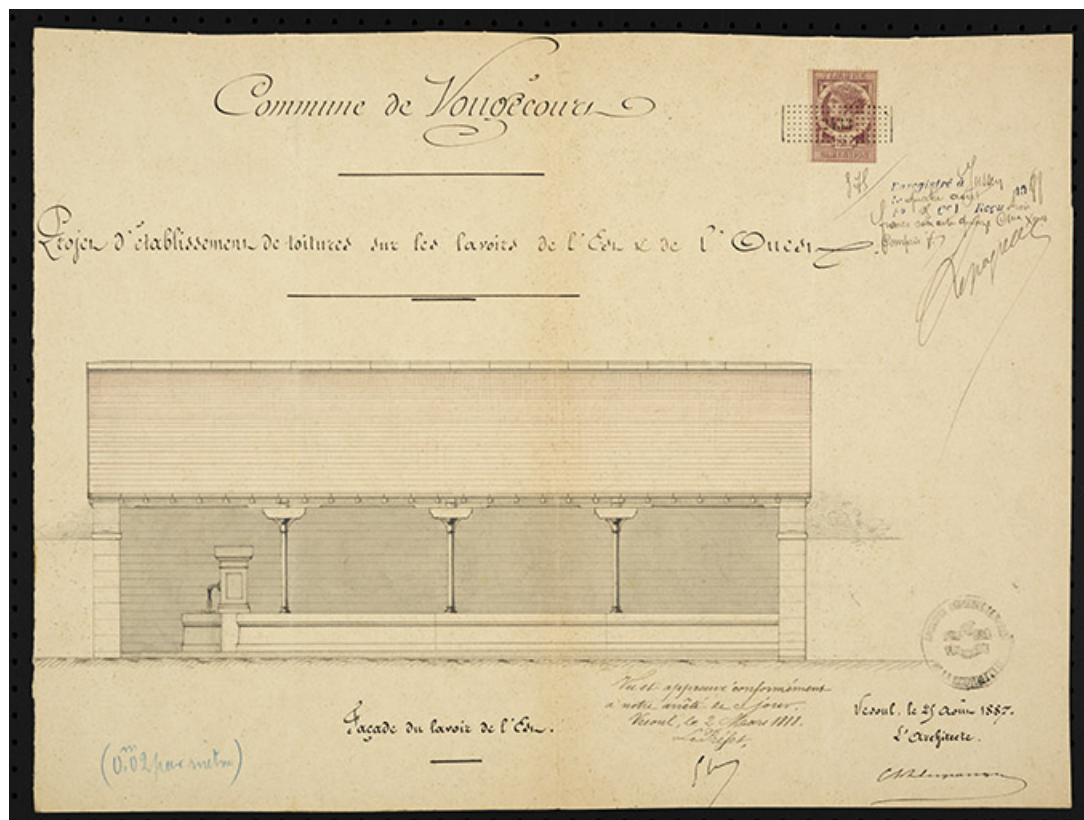 Commune de Vougécourt
Projet d'établissement de toitures sur les lavoirs de l'Est & de l'Ouest.
375
Enregistré à Jussey
Reçu
Façade du lavoir de l'Est.
(0,m02 par mètre)
Vu et approuvé conformément
à notre arrêté de ce jour.
Vesoul, le 2 Mars 1888.
Le Préfet,
Vesoul, le 25 Août 1887.
L'Architecte.